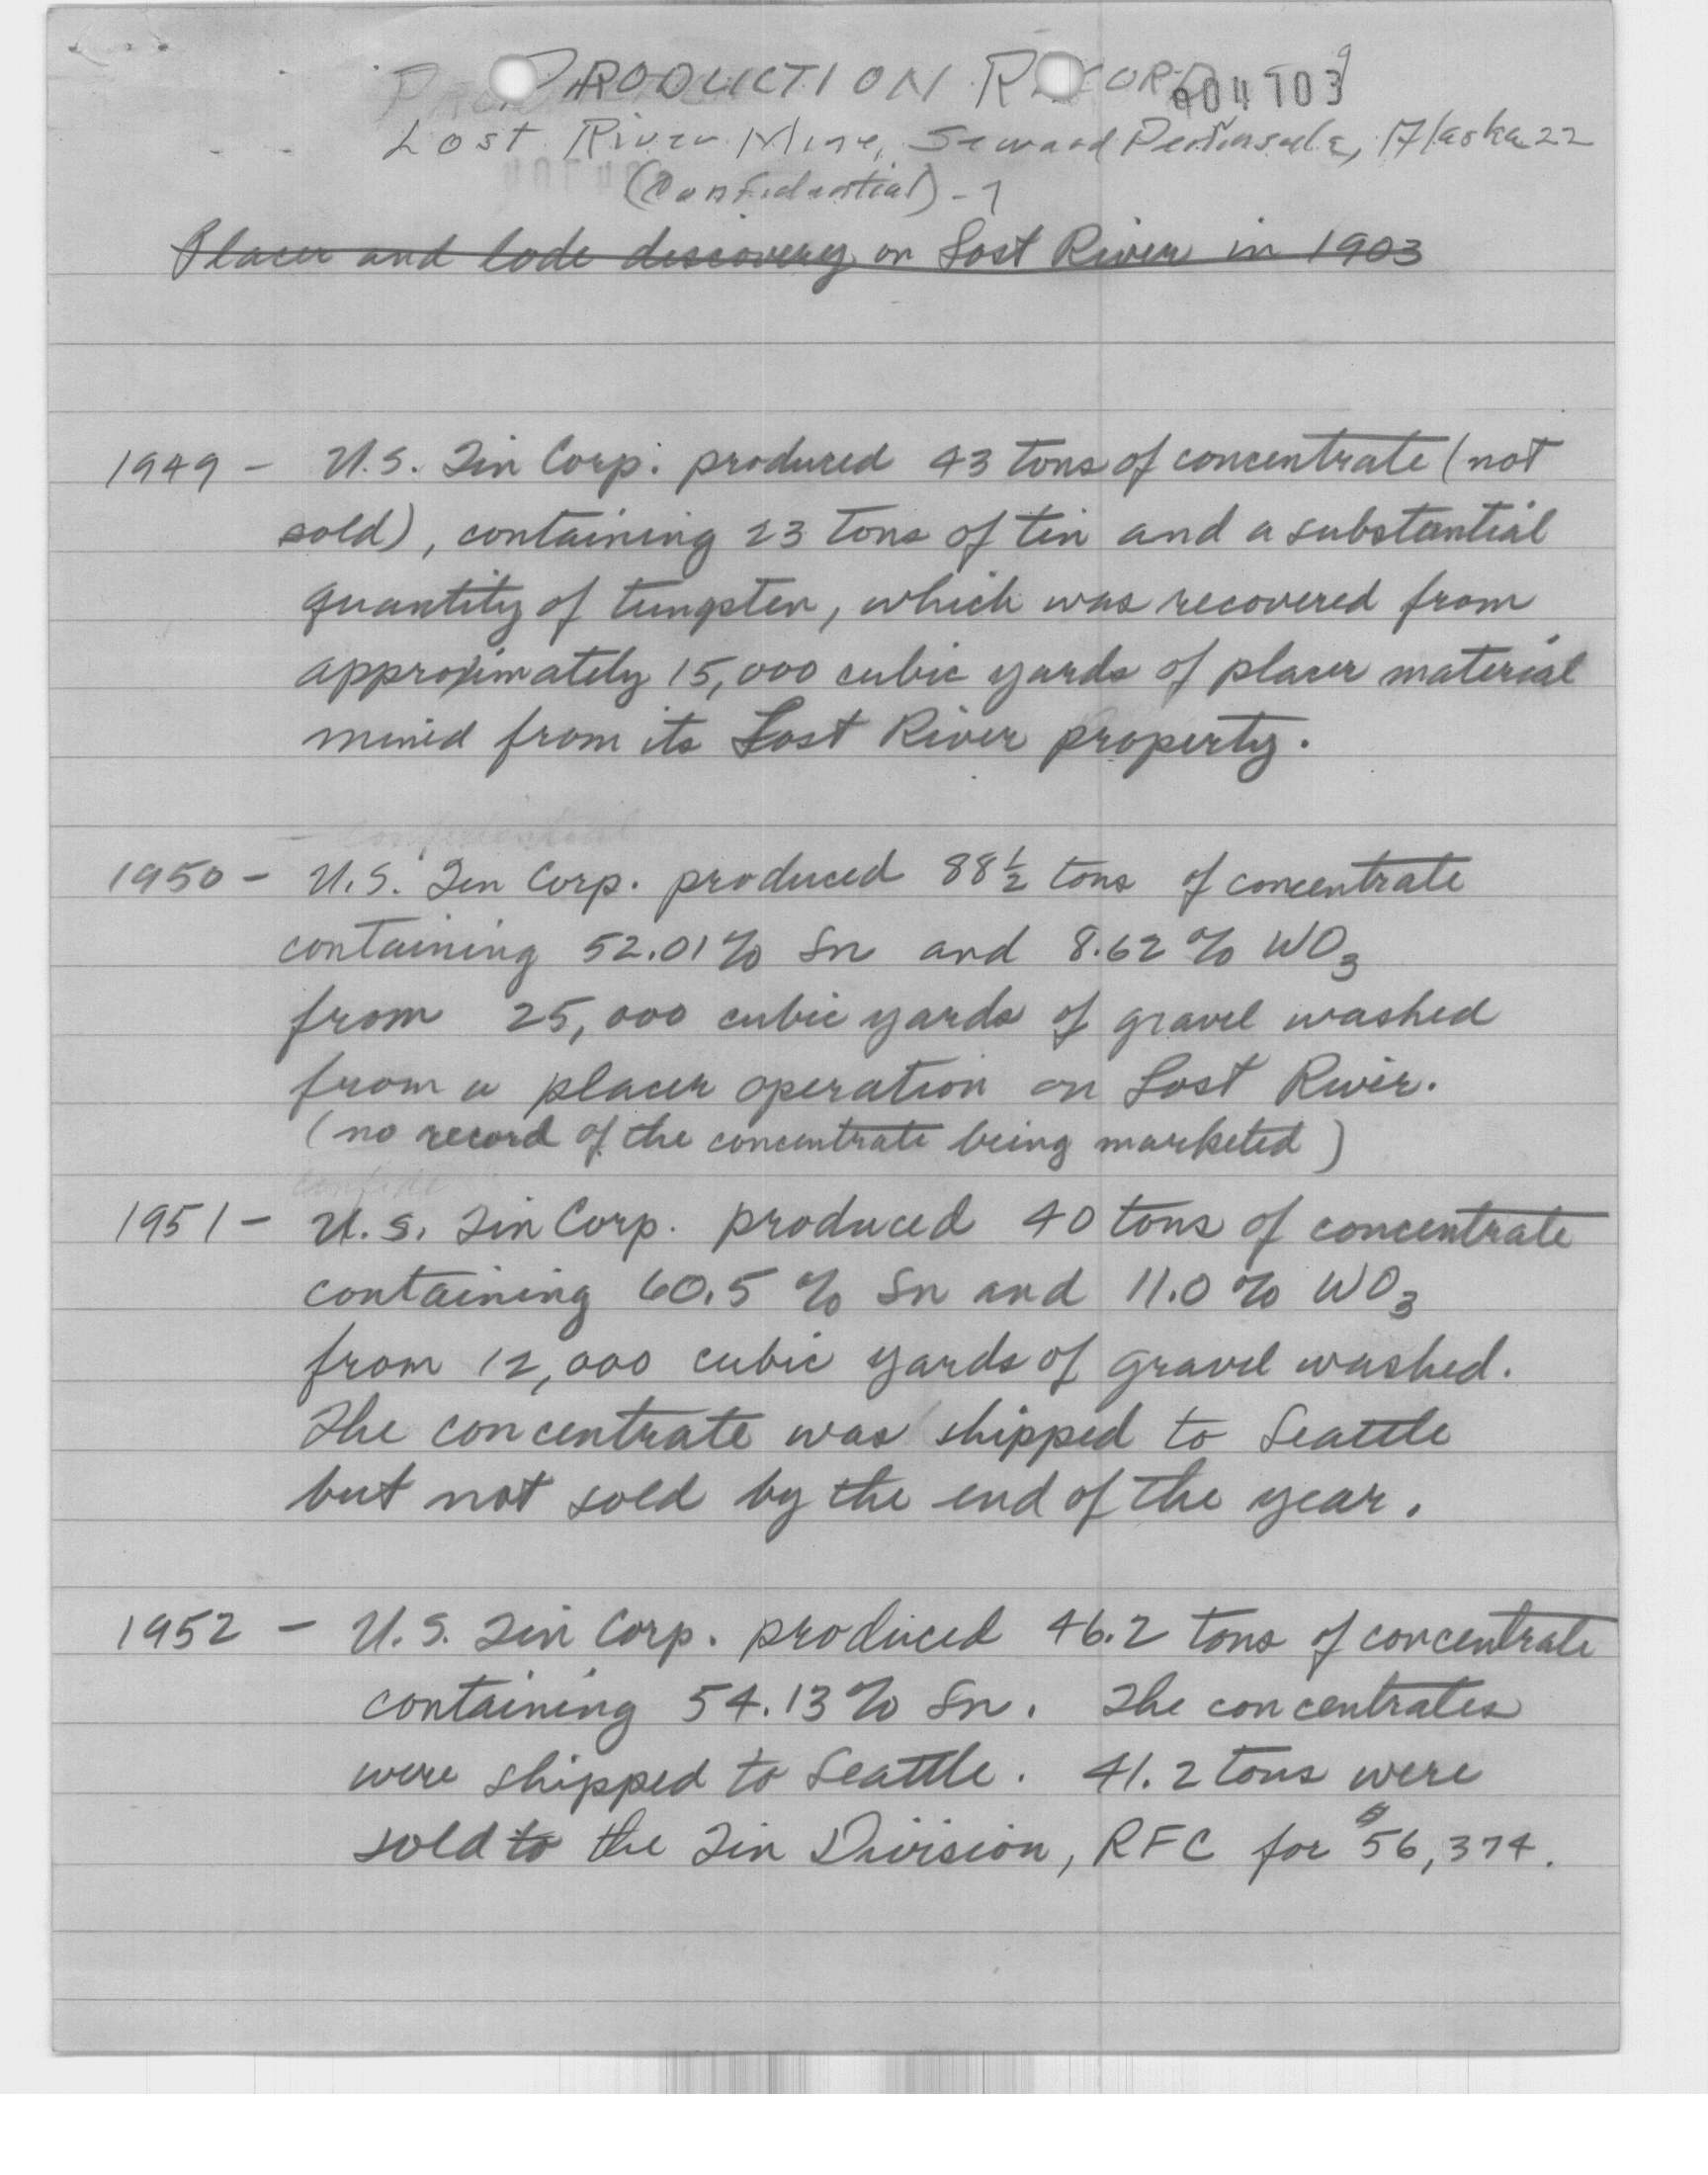 PRODUCTION RECORD
004103
Lost River Mine, Seward Peninsula, Alaska 22
(Confidential) - 1
Placer and lode discovery on Lost River in 1903
1949 - U.S. Tin Corp. produced 43 tons of concentrate (not
sold), containing 23 tons of tin and a substantial
quantity of tungsten, which was recovered from
approximately 15,000 cubic yards of placer material
mined from its Lost River property.
Confidential
1950 - U.S. Tin Corp. produced 88 1/2 tons of concentrate
containing 52.01% Sn and 8.62% WO3
from 25,000 cubic yards of gravel washed
from a placer operation on Lost River.
(no record of the concentrate being marketed)
1951 - U.S. Tin Corp. produced 40 tons of concentrate
containing 60.5% Sn and 11.0% WO3
from 12,000 cubic yards of gravel washed.
The concentrate was shipped to Seattle
but not sold by the end of the year.
1952 - U.S. Tin Corp. produced 46.2 tons of concentrate
containing 54.13% Sn. The concentrates
were shipped to Seattle. 41.2 tons were
sold to the Tin Division, RFC for $56,374.